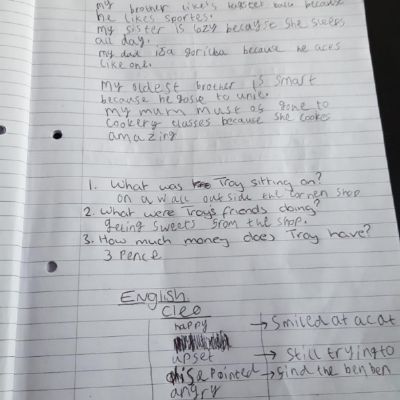 my brother like's because
he likes sportes.
my sister is lazy becayse she sleeps
all day.
my dad is a gorilba because he aces
like one.
my oldest brother is smart
because he gosie to unie.
my mum must of gone to
cookery classes because she cookes
amazing
1. What was Troy sitting on?
on a wall outside the corner shop
2. What were Troys friends doing?
geeing sweets from the shop.
3. How much money does Troy have?
3 pence
English
Cleo
happy → Smiled at a cat
upset → still trying to
disapointed → gind the benben
angry